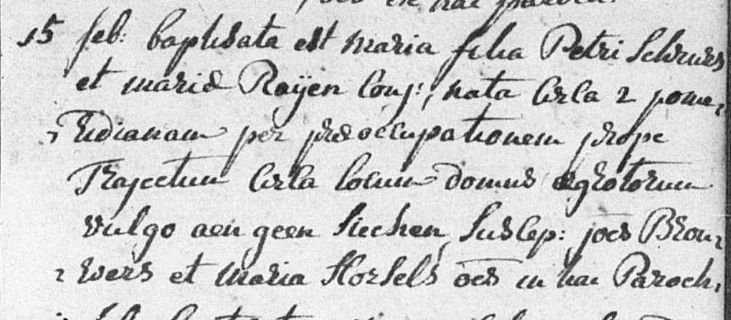 15 feb: baptisata est maria filia Petri Schrurs
et mariæ Raÿen conj:, nata circa 2 pome,,
,,ridianam per præoccupationem prope
Trajectum circa locum domus ægrotorum
vulgo aen geen Siechen, Suscep: joes Brou,,
,,wers et maria Horsels oēs in hac Paroch,